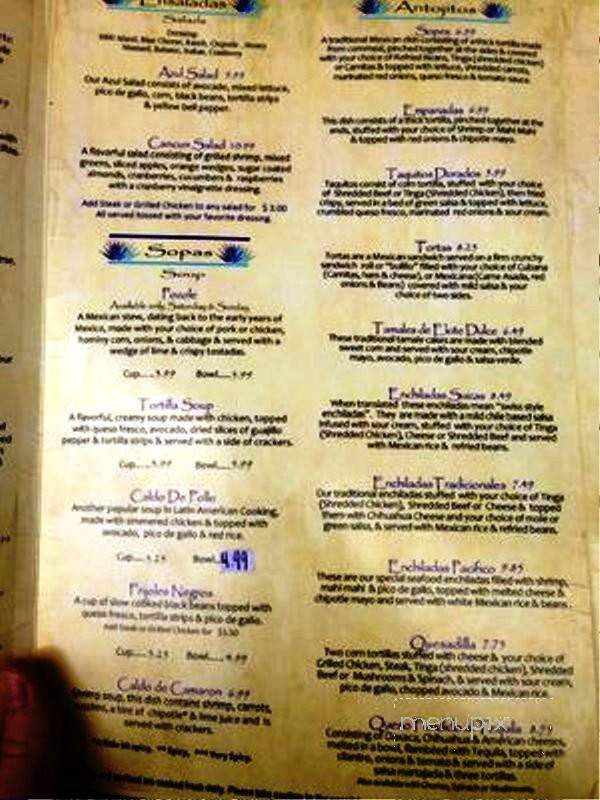 Ensaladas
Salads
Dressing:
1000 Island, Blue Cheese, Ranch, Chipotle, Honey
Mustard, Balsamic, Italian, Cranberry
Azul Salad 7.99
Our Azul Salad consists of avocado, mixed lettuce,
pico de gallo, corn, black beans, tortilla strips
& yellow bell pepper.
Cancun Salad 10.99
A flavorful salad consisting of grilled shrimp, mixed
greens, sliced apples, orange wedges, sugar coated
almonds, cranberries, cucumbers & raspberries
with a cranberry vinaigrette dressing
Add Steak or Grilled Chicken to any salad for $ 3.00
All served tossed with your favorite dressing.
Sopas
Soup
Pozole
Available only Saturday & Sunday
A Mexican stew, dating back to the early years of
Mexico, made with your choice of pork or chicken,
hominy corn, onions, & cabbage & served with a
wedge of lime & crispy tostadas.
Cup.....3.99 Bowl.....5.99
Tortilla Soup
A flavorful, creamy soup made with chicken, topped
with queso fresco, avocado, dried slices of guajillo
pepper & tortilla strips & served with a side of crackers.
Cup.....3.99 Bowl.....5.99
Caldo De Pollo
Another popular soup in Latin American Cooking,
made with simmered chicken & topped with
avocado, pico de gallo & red rice.
Cup.....3.25 Bowl 4.99
Frijoles Negros
A cup of slow cooked black beans topped with
queso fresco, tortilla strips & pico de gallo.
Add Steak or Grilled Chicken for $1.50
Cup.....3.25 Bowl.....4.99
Caldo de Camaron 6.99
Shrimp soup, this dish contains shrimp, carrots,
a tint of chipotle* & lime juice and is
served with crackers.
spicy, ** Spicy, *** Very Spicy.
Antojitos
Sopes 6.99
A traditional Mexican dish consisting of a thick tortilla made
from cornmeal, pinched together at the sides & covered
with your choice of Refried Beans, Tinga (shredded chicken)
and potatoes & topped with lettuce, shredded carrots,
marinated red onions, queso fresco & tomato sauce.
Empanadas 6.99
This dish consists of a thick tortilla, pinched together at the
ends, stuffed with your choice of Shrimp or Mahi Mahi
& topped with red onions & chipotle mayo.
Taquitos Dorados 5.99
Taquitos consist of corn tortilla, stuffed with your choice
of Shredded Beef or Tinga (Shredded Chicken), then fried
crispy, served in a bed of green salsa & topped with lettuce,
crumbled queso fresco, marinated red onions & sour cream.
Tortas 8.25
Tortas are a Mexican sandwich served on a firm crunchy
sandwich roll or "bolillo" filled with your choice of Cubana
(Carnitas, ham & cheese), or Mexicana (Carne Asada, red
onions & Beans) covered with mild salsa & your
choice of two sides.
Tamales de Elote Dulce 6.49
These traditional tamale cakes are made with blended
sweet corn and served with sour cream, chipotle
mayo, avocado, pico de gallo & salsa verde.
Enchiladas Suizas 8.49
When translated these enchiladas mean "swiss style
enchiladas". They are made with a mild chile based salsa
infused with sour cream, stuffed with your choice of Tinga
(Shredded Chicken), Cheese or Shredded Beef and served
with Mexican rice & refried beans.
Enchiladas Tradicionales 7.49
Our traditional enchiladas stuffed with your choice of Tinga
(Shredded Chicken), Shredded Beef or Cheese & topped
them with Chihuahua Cheese and your choice of mole or
green salsa, & served with Mexican rice & refried beans.
Enchiladas Pacifico 9.85
These are our special seafood enchiladas filled with shrimp,
mahi mahi & pico de gallo, topped with melted cheese &
chipotle mayo and served with white Mexican rice & beans.
Quesadilla 7.75
Two corn tortillas stuffed with cheese & your choice of
Grilled Chicken, Steak, Tinga (shredded chicken), Shredded
Beef or Mushrooms & Spinach, & served with sour cream,
pico de gallo, chopped avocado & Mexican rice.
8.79
menupix
Consisting of Oaxaca, Chihuahua & American cheeses,
melted in a bowl, flambéed with Tequila, topped with
cilantro, onions & tomato & served with a side of
salsa martajada & three tortillas.
Also available with Chorizo, Spinach or Mushrooms.